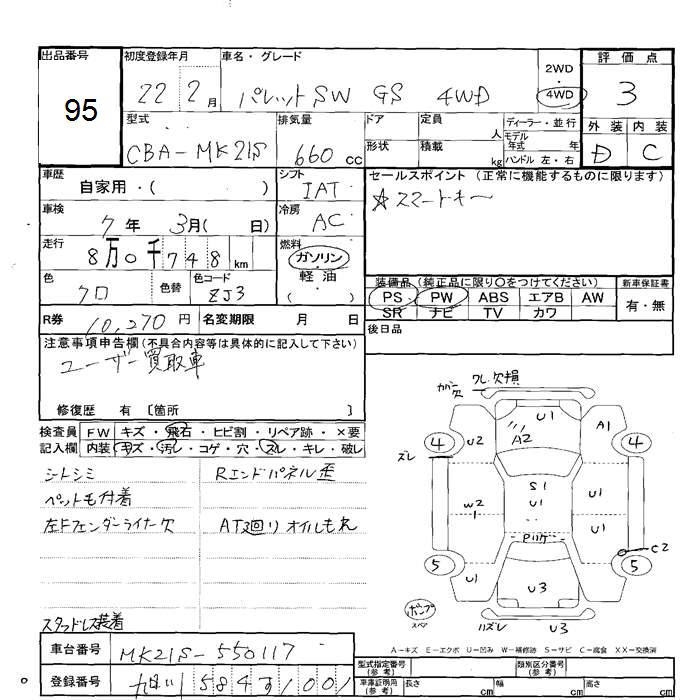 出品番号
95
初度登録年月
22 2月
車名・グレード
パレットSW GS 4WD
2WD
・
4WD
評価点
3
外装 内装
D C
型式
CBA-MK21S
排気量
660 cc
ドア
形状
定員
人
積載
kg
ディーラー・並行
モデル年式 年
ハンドル 左・右
車歴
自家用・( )
シフト
IAT
セールスポイント (正常に機能するものに限ります)
☆スマートキー
車検
7年 3月( 日)
冷房
AC
走行
8万0千748 km
燃料
ガソリン
・
軽油
( )
色
クロ
色替
色コード
ZJ3
装備品 (純正品に限り○をつけてください)
PS PW ABS エアB AW
SR ナビ TV カワ
新車保証書
有・無
R券
10,270円
名変期限 月 日
後日品
注意事項申告欄(不具合内容等は具体的に記入して下さい)
ユーザー買取車
修復歴 有 [箇所 ]
検査員
記入欄
FW キズ・飛石・ヒビ割・リペア跡・×要
内装 キズ・汚レ・コゲ・穴・スレ・キレ・破レ
シートシミ
ペット毛付着
左Fフェンダーライナー欠
Rエンドパネル歪
AT廻りオイルもれ
スタッドレス装着
カバー欠
ワレ.欠損
U1
A1
A2
4
U2
4
ズレ
S1
U1
U1
W2
U1
C2
5
U1
5
U3
テンプ
スペア
ハズレ
U3
A-キズ E-エクボ U-凹み W-補修跡 S-サビ C-腐食 XX-交換済
車台番号
MK21S-550117
登録番号
型式指定番号
(参考)
類別区分番号
(参考)
車庫証明用
(参考)
長さ cm
幅 cm
高さ cm